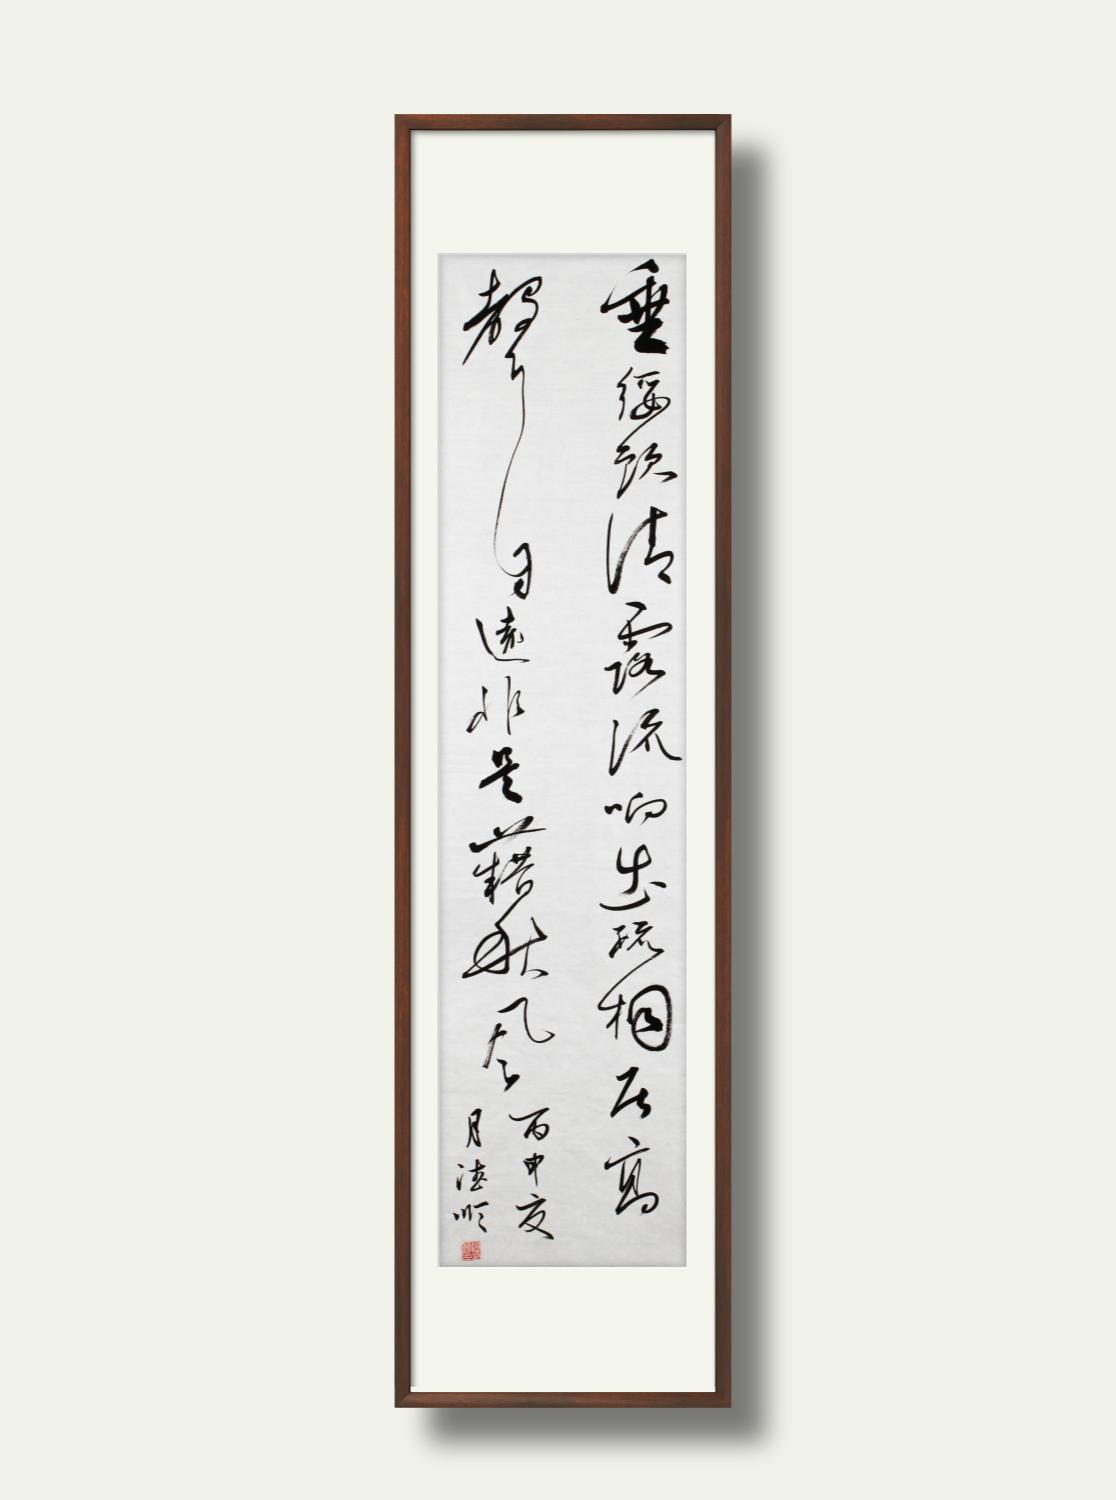 垂绥飲清露流响出疏桐居高
聲自遠非是藉秋風
丙申夏
月德顺